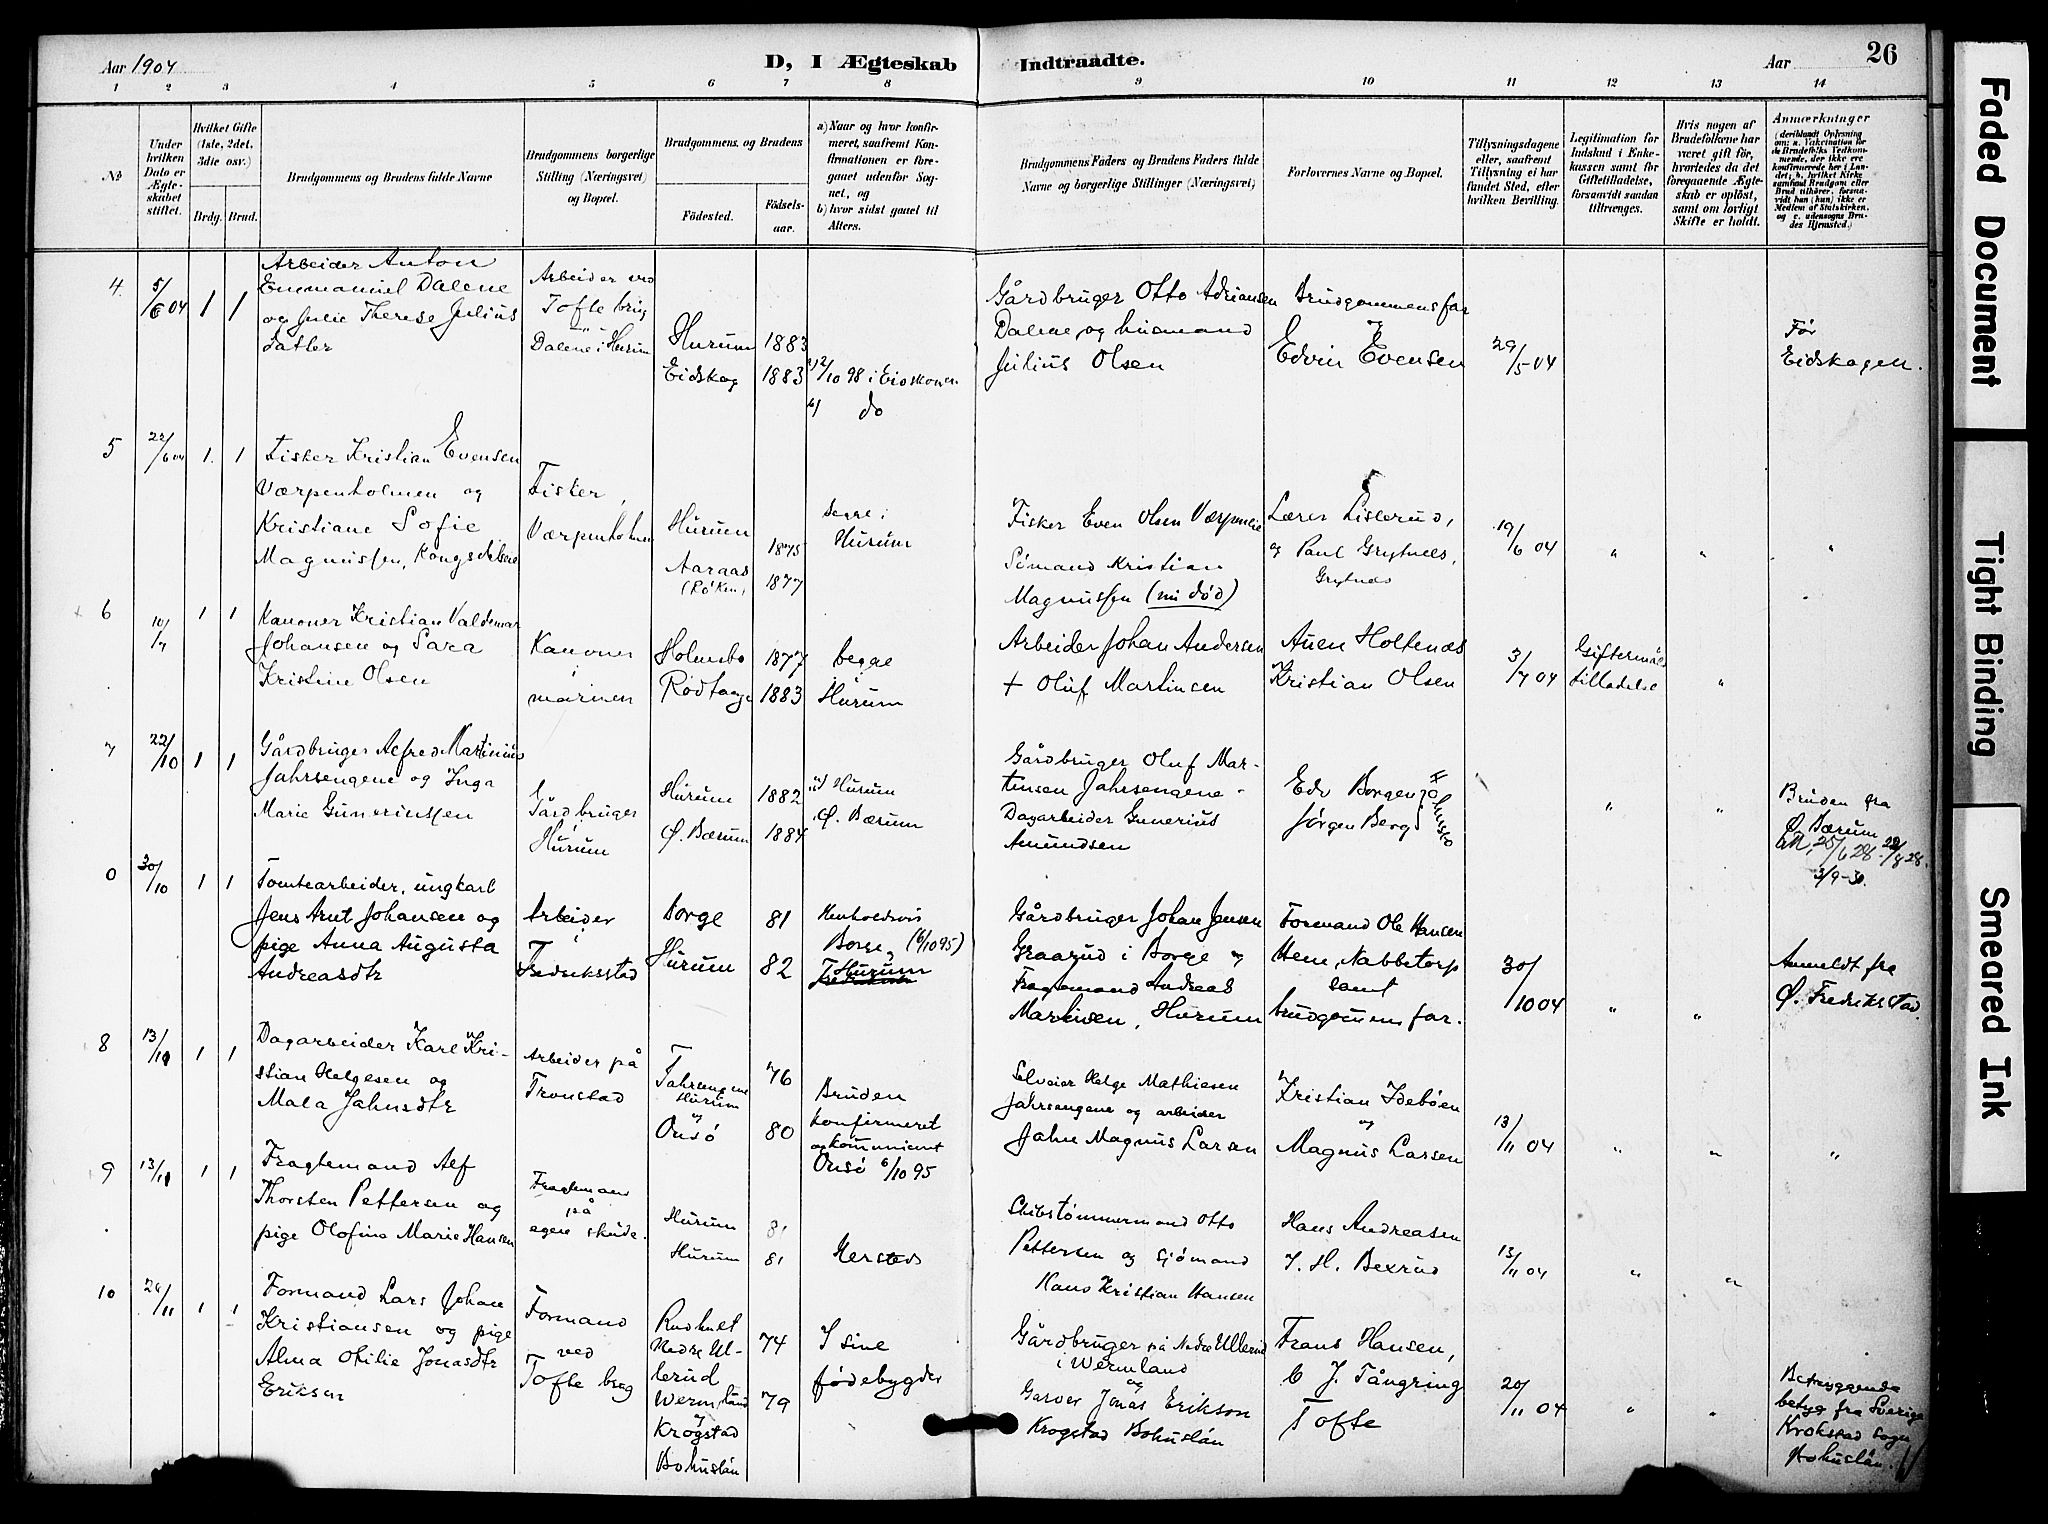 Aar 1904
D, I Ægteskab Indtraadte.
Aar
26
1 2 3 4 5 6 7 8 9 10 11 12 13 14
No
Under hvilken Dato er Ægteskabet stiftet.
Hvilket Gifte (1ste, 2det, 3die osv.)
Brdg. Brud.
Brudgommens og Brudens fulde Navne
Brudgommens borgerlige Stilling (Næringsvei) og Bopæl.
Brudgommens. og Brudens
Fødested.
Fødselsaar.
a) Naar og hvor konfirmeret, saafremt Konfirmationen er foregaaet udenfor Sognet, og
b) hvor sidst gaaet til Alters.
Brudgommens Faders og Brudens Faders fulde Navne og borgerlige Stillinger (Næringsvei)
Forlovernes Navne og Bopæl.
Tillysningsdagene eller, saafremt Tillysning ei har fundet Sted, efter hvilken Bevilling.
Legitimation for Indskud i Enkekassen samt for Giftetilladelse, forsaavidt saadan tiltrænges.
Hvis nogen af Brudefolkene har været gift før, hvorledes da det foregaaende Ægteskab er opløst, samt om lovligt Skifte er holdt.
Anmerkninger
(deriblandt Oplysning om: a. Vakcination for de Brudefolks Vedkommende, der ikke ere konfirmerede her i Landet; b. hvilket Kirkesamfund Brudgom eller Brud tilhører, forsaavidt han (hun) ikke er Medlem af Statskirken, og c. udensogns Brudes Hjemsted.)
4. 5/6 04 1 1
Arbeider Anton
Emmanuel Dalene
og Julie Therese Julius
datter
Arbeider ved
Tofte brug
Dalene i Hurum
Hurum 1883
Eidskog 1883
a) 2/10 98 i Eidskogen
b) do
Gårdbruger Otto Adriansen
Dalene, og husmand
Julius Olsen
Brudgommens far
Edvin Evensen
29/5 04
Før
Eidskogen.
5 22/6 04 1. 1
Fisker Kristian Evensen
Værpenholmen og
Kristiane Sofie
Magnussen, Kongsdelene
Fisker,
Værpenholmen
Hurum 1875
Aaraas 1877
(Røken)
begge i
Hurum
Fisker Even Olsen Værpenholmen
Sømand Kristian
Magnussen (nu død)
Lærer Lillerud,
og Paul Grytnes,
Grytnes
19/6 04 " " "
6 10/7 1 1
Kanoner Kristian Valdemar
Johansen og Sara
Kristine Olsen
Kanoner
i
marinen
Holmsbo 1877
Rødtangen 1883
begge
i
Hurum
Arbeider Johan Andersen
+ Oluf Martinsen
Auen Holtenæs
Kristian Olsen
3/7 04
Giftermåls
tilladelse "
7 22/10 1 1
Gårdbruger Alfred Martinius
Jahrsengene og Inga
Marie Gunerinssen
Gårdbruger
i
Hurum
Hurum 1882
Ø. Bærum 1884
Hurum
Ø. Bærum
Gårdbruger Oluf Mar-
tinsen Jahrsengene
Dagarbeider Gunerius
Amundsen
Edv Borgen
Jørgen Berg
" "
Bruden fra
Ø. Bærum
25/6 28 - 22/8 28.
3/9-30.
0 30/10 1 1
Tomtearbeider, ungkarl
Jens Arnt Johansen og
pige Anna Augusta
Andreasdtr
Arbeider
i
Fredriksstad
Borge 81
Hurum 82
Henholdsvis
Borge, (6/10 95)
Hurum
Gårdbruger Johan Jensen
Graarud i Borge og
Fragtemand Andreas
Martinsen, Hurum
Formand Ole Hansen
Hem, Nabbetorp
samt
brudgommens far.
30/10 04 " "
Anmeldt fra
Ø. Fredriksstad.
8 13/11 1 1
Dagarbeider Karl Kri-
stian Helgesen og
Mala Jahnsdtr
Arbeider på
Tronstad
Jahrengene 76
Hurum
og
Onsø 80
Bruden
konfirmeret
og kommunicert
Onsø 6/10 95
Selveier Helge Mathiesen
Jahrsengene og arbeider
Jahn Magnus Larsen
Kristian Idebøen
og
Magnus Larsen
13/11 04 " " "
9 13/11 1 1
Fragtemand Alf
Thorsten Pettersen og
pige Olofine Marie Hansen
Fragtemand
på
egen skude.
Hurum 81
Hurum 81
Hersteds
Skibstømmermand Otto
Pettersen og sjømand
Hans Kristian Hansen
Hans Andreasen
J. H. Bexrud
13/11 04 " "
10 20/11 1 1
Formand Lars Johan
Kristiansen og pige
Alma Otilie Jonasdtr
Eriksen
Formand
ved
Tofte brug
Rudhult 74
Nedre Ul-
lerud
Wermland 79
og
Krogstad
Bohuslån
I sine
fødebygder
Gårdbruger på Nedre Ullerud
i Wermland
og
Garver Jonas Erikson
Krogstad Bohuslån
Frans Hansen,
C J. Tångring
Tofte
20/11 04 " "
Betryggende
betyg fra Sverige
Krokstad sogn
Bohuslån.
Faded Document
Tight Binding
Smeared Ink